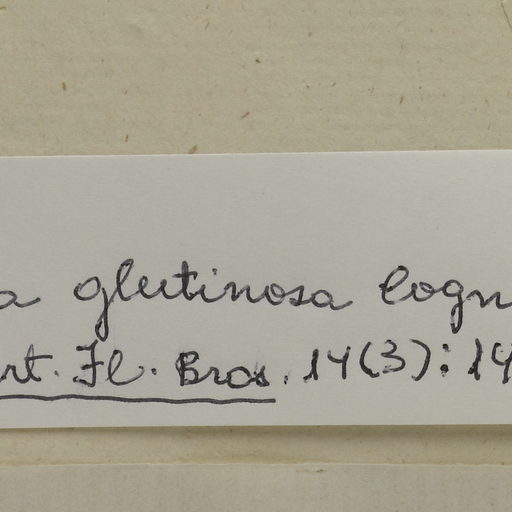 a glutinosa Cogn
rt. Fl. Bras. 14(3): 14